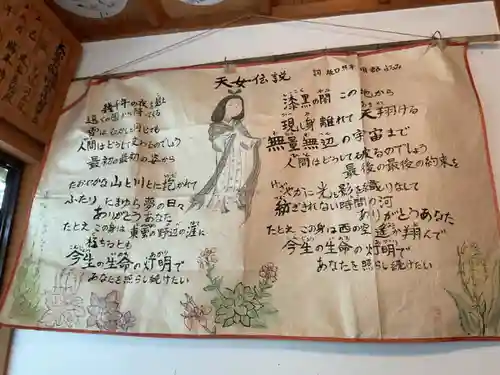 天女伝説
幾千年の夜を越え
遠くの国から降ってくる
雪はむかしと同じでも
人間はどうして変わるのでしょう
最初の最初の姿から
たおやかな山と川とに抱かれて
ふたりにまみゆる夢の日々
ありがとうあなた
たとえこの身は東雲の野辺の涯に
朽ちるとも
今生の生命の灯明で
あなたを照らし続けたい
漆黒の闇この地から
現し身離れて天翔ける
無量無辺の宇宙まで
人間はどうして破るのでしょう
最後の最後の約束を
けざやかに光と影を織りなして
紡ぎきれない時間の河
ありがとうあなた
たとえこの身は西の空遥か翔んで
今生の生命の灯明で
あなたを照らし続けたい